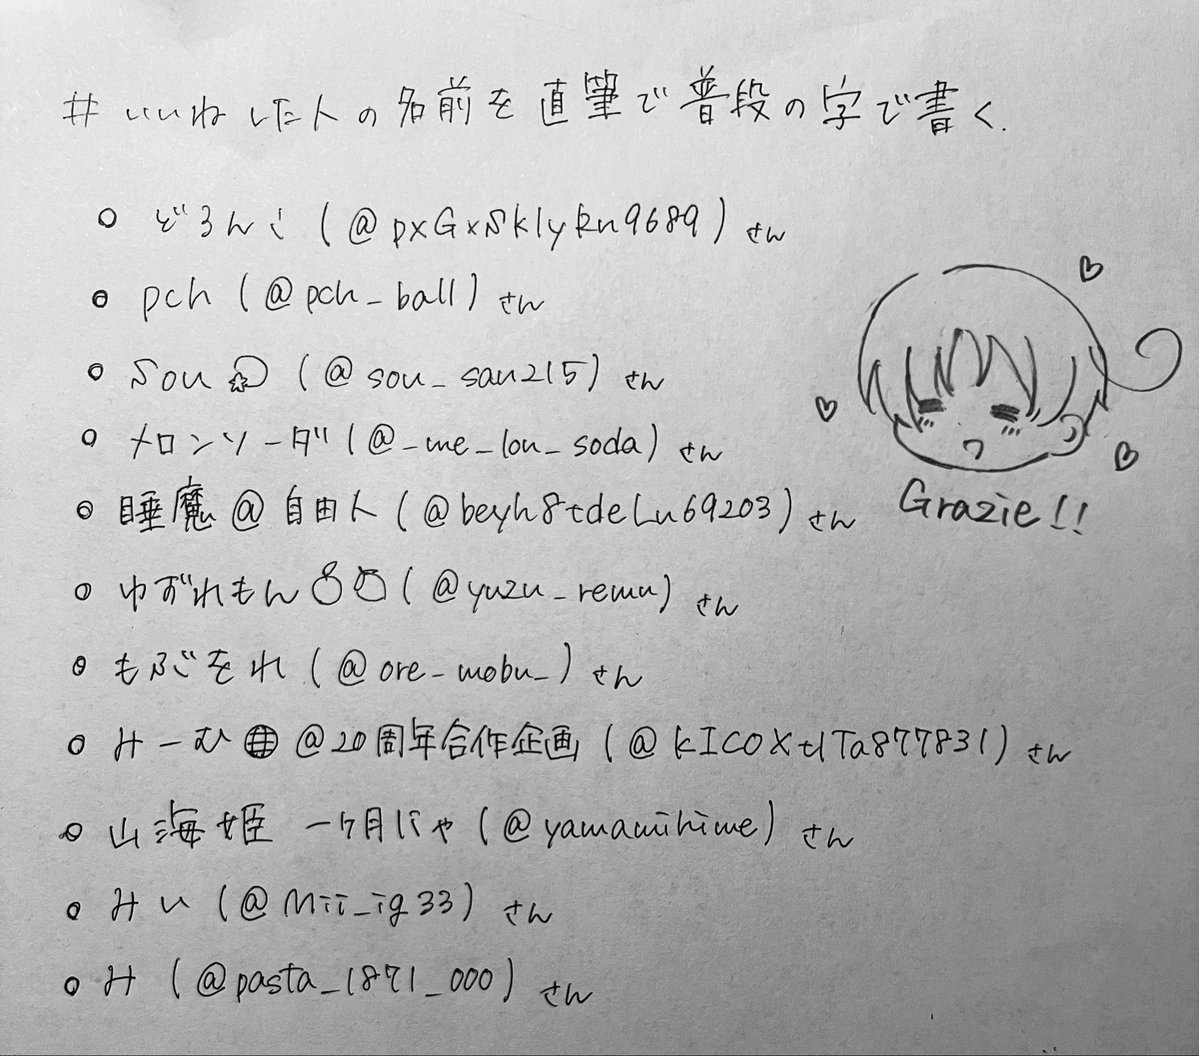 #いいねした人の名前を直筆で普段の字で書く.
○ どろんこ (@pxGxSklyRn9689) さん
○ pch (@pch_ball) さん
○ Sou (@sou_san215) さん
○ メロンソーダ (@_me_lon_soda) さん
○ 睡魔@自由人 (@beyh8tdeLu69203) さん
○ ゆずれもん (@yuzu_remn) さん
○ もぶをれ (@ore_mobu_) さん
○ みーむ @20周年合作企画 (@kICOXtlTa877831) さん
○ 山海姫 一ヶ月じゃ (@yamamihime) さん
○ みい (@Mii_ig33) さん
○ み (@pasta_1871_000) さん
Grazie!!